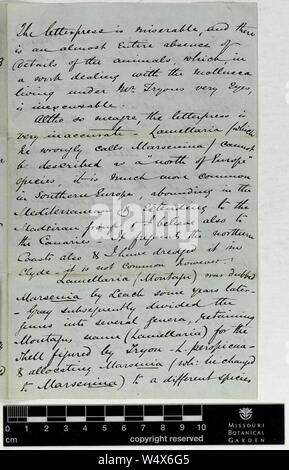 The letterpress is miserable, and there
is an almost entire absence of
details of the animals, which in
a work dealing with the Mollusca
living under Mr. Tryons very Eyes,
is inexcusable.
Altho so meagre, the letterpress is
very inaccurate. Lamellaria (which
he wrongly calls Marsenina) cannot
be described as a "north of Europe"
species, it is much more common
in Southern Europe, abounding in the
Mediterranean & extending to the
Madeiran group, & I believe also to
the Canaries - It frequents the northern
Coasts also & I have dredged it in
Clyde - it is not common, however.
Lamellaria (Montagu) was dubbed
Marsenia by Leach some years later -
Gray subsequently divided the
genus into several genera, retaining
Montagus name (Lamellaria) for the
Shell figured by Tryon - L. perspicua -
& allocating Marsenia (wh: he changed
to Marsenina) to a different species
alamy
0
cm
1
2
3
4
5
6
7
8
9
10
copyright reserved
MISSOURI
BOTANICAL
GARDEN
alamy
Image ID: W4X6G5
www.alamy.com